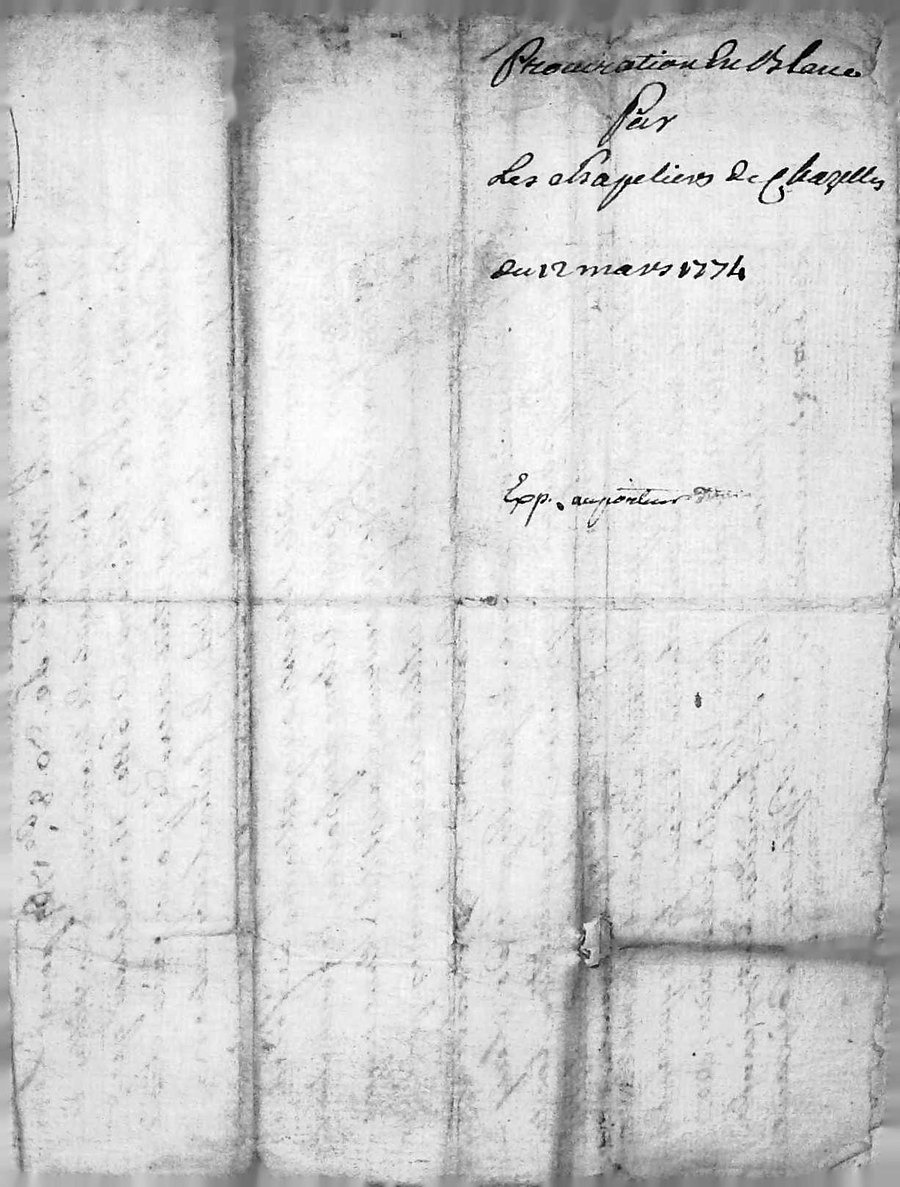 Procuration En Blanc
Par
Les chapeliers de Chazelles
du 12 mars 1774
Exp. au porteur